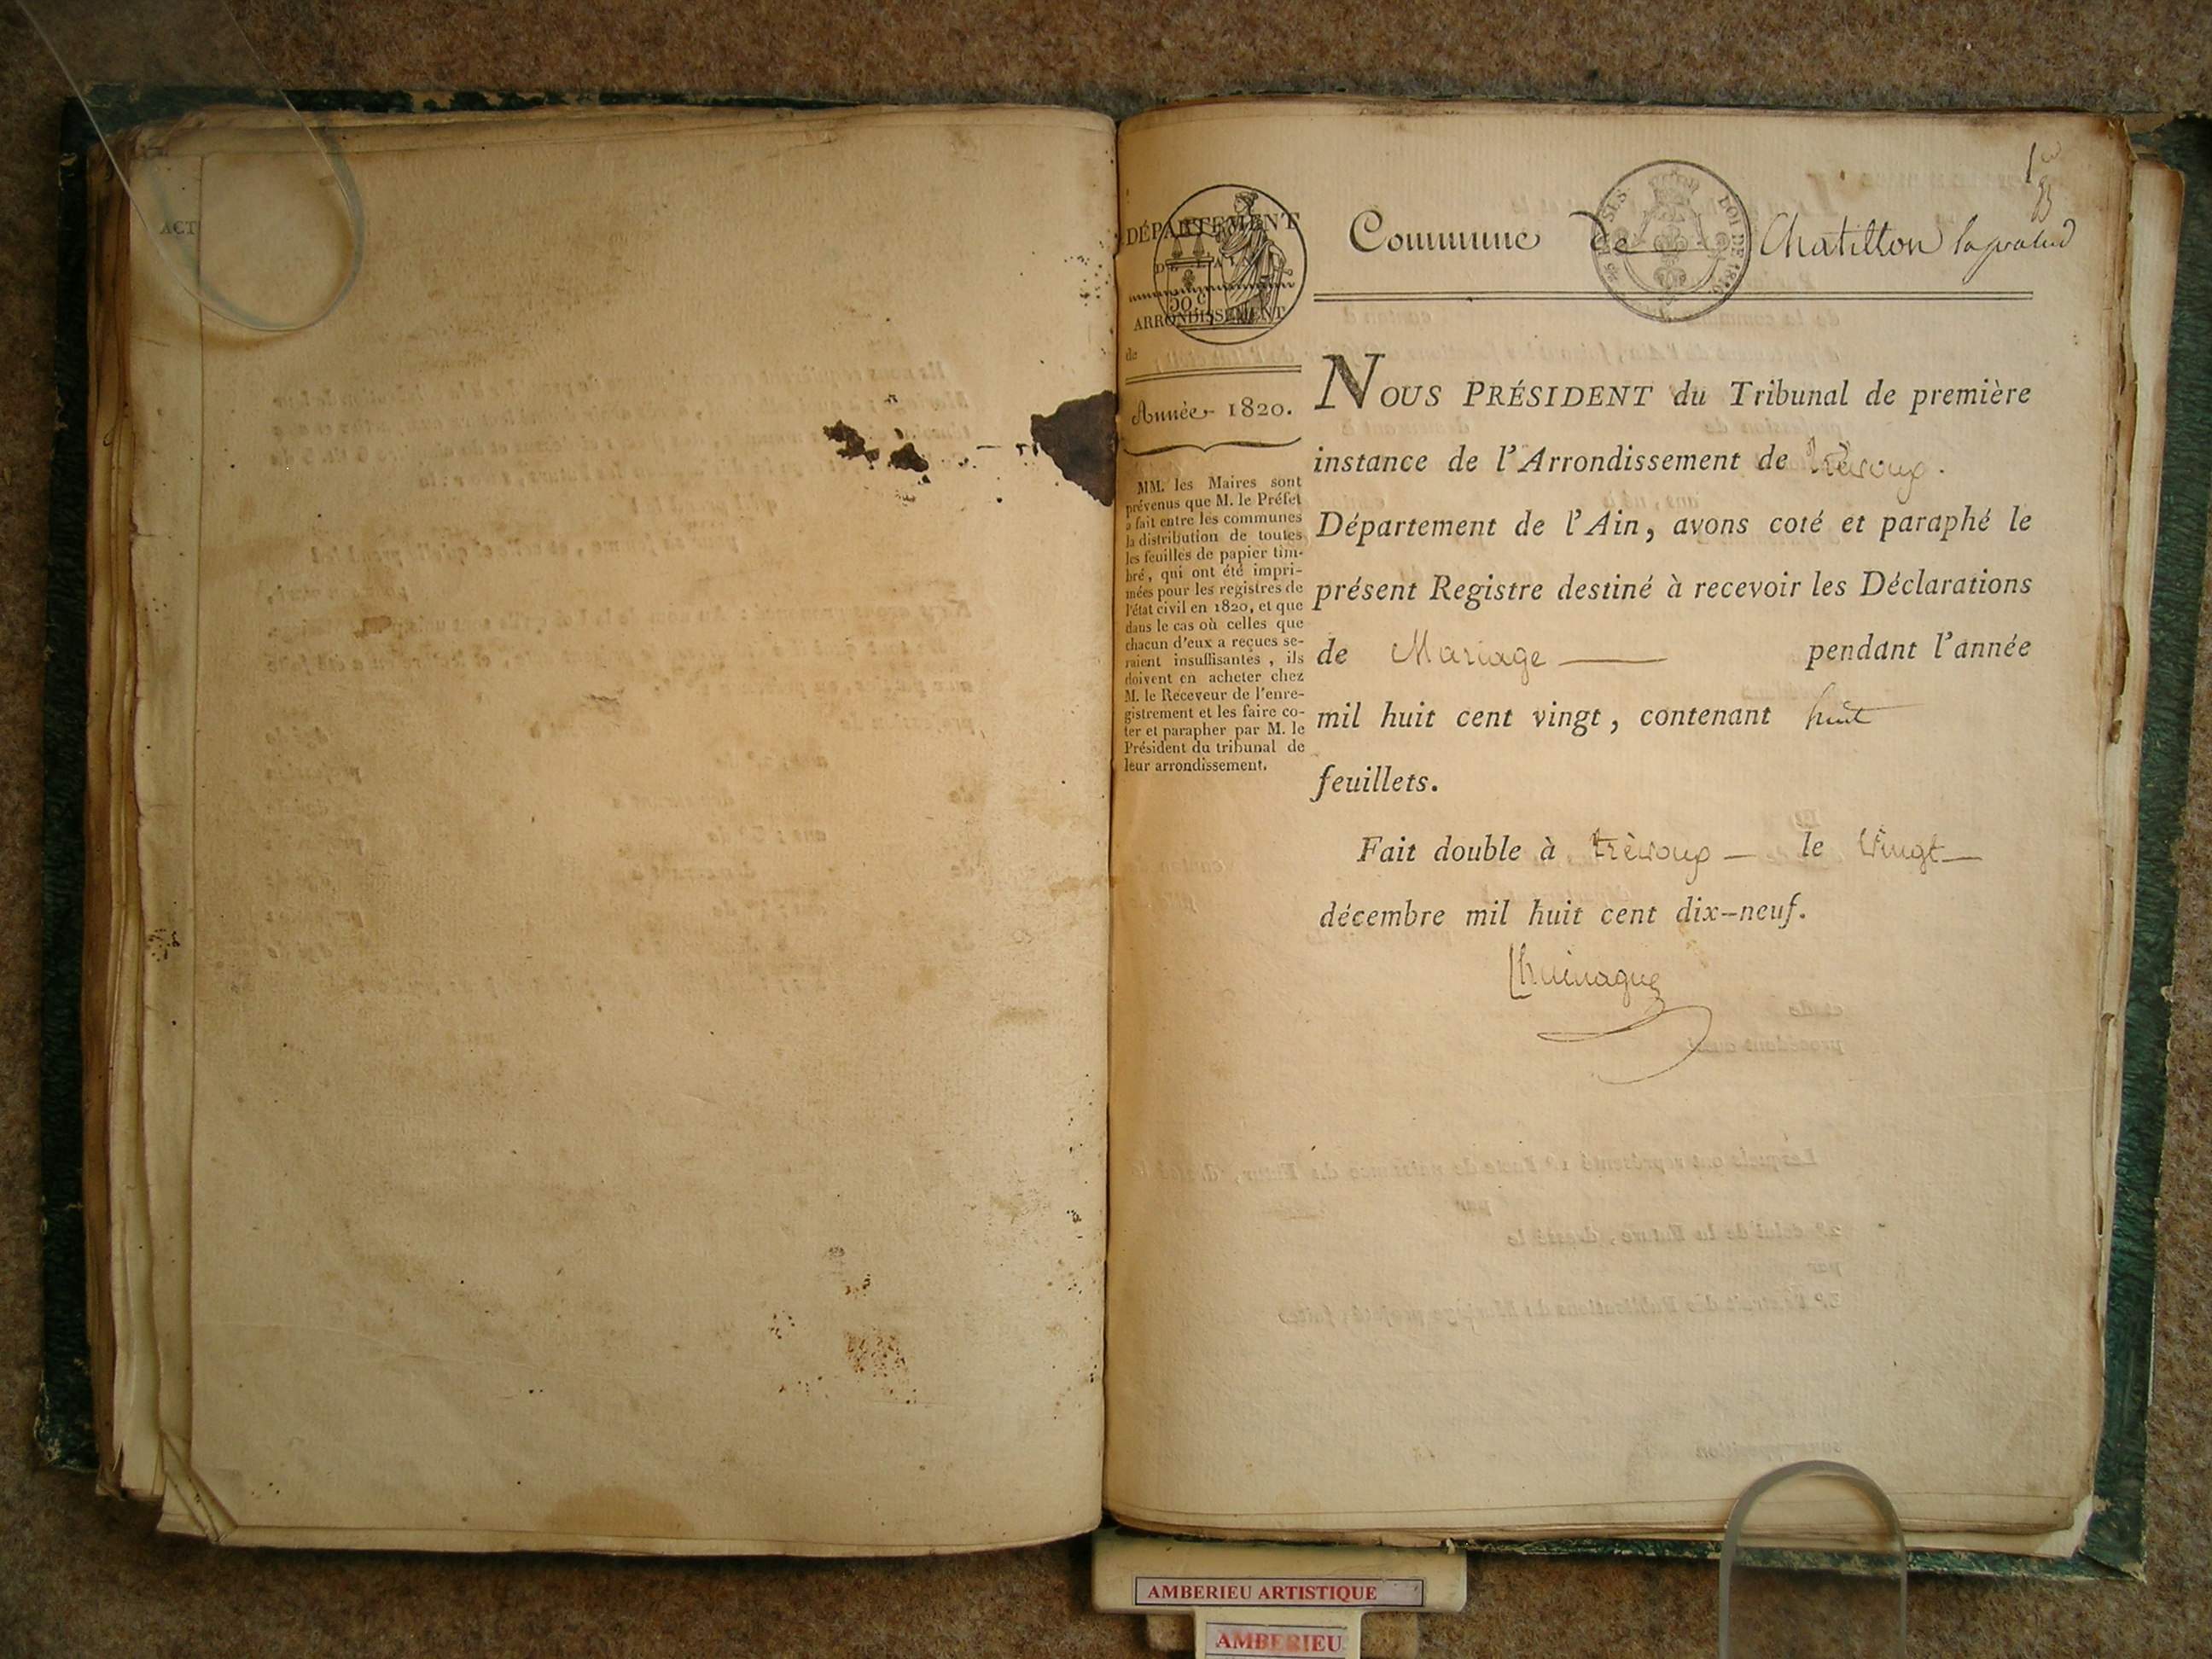 ACT
1er
DÉPARTEMENT
DE L'AIN
20 c
ARRONDISSEMENT
de
Année 1820.
MM. les Maires sont
prévenus que M. le Préfet
a fait entre les communes
la distribution de toutes
les feuilles de papier tim-
bré, qui ont été impri-
mées pour les registres de
l'état civil en 1820, et que
dans le cas où celles que
chacun d'eux a reçues se-
raient insuffisantes, ils
doivent en acheter chez
M. le Receveur de l'enre-
gistrement et les faire co-
ter et parapher par M. le
Président du tribunal de
leur arrondissement.
Commune de Chatillon lapalud
LOI DE 1816
NOUS PRÉSIDENT du Tribunal de première
instance de l'Arrondissement de trévoux.
Département de l'Ain, avons coté et paraphé le
présent Registre destiné à recevoir les Déclarations
de Mariage — pendant l'année
mil huit cent vingt, contenant huit
feuillets.
Fait double à trévoux — le vingt —
décembre mil huit cent dix-neuf.
AMBERIEU ARTISTIQUE
AMBERIEU